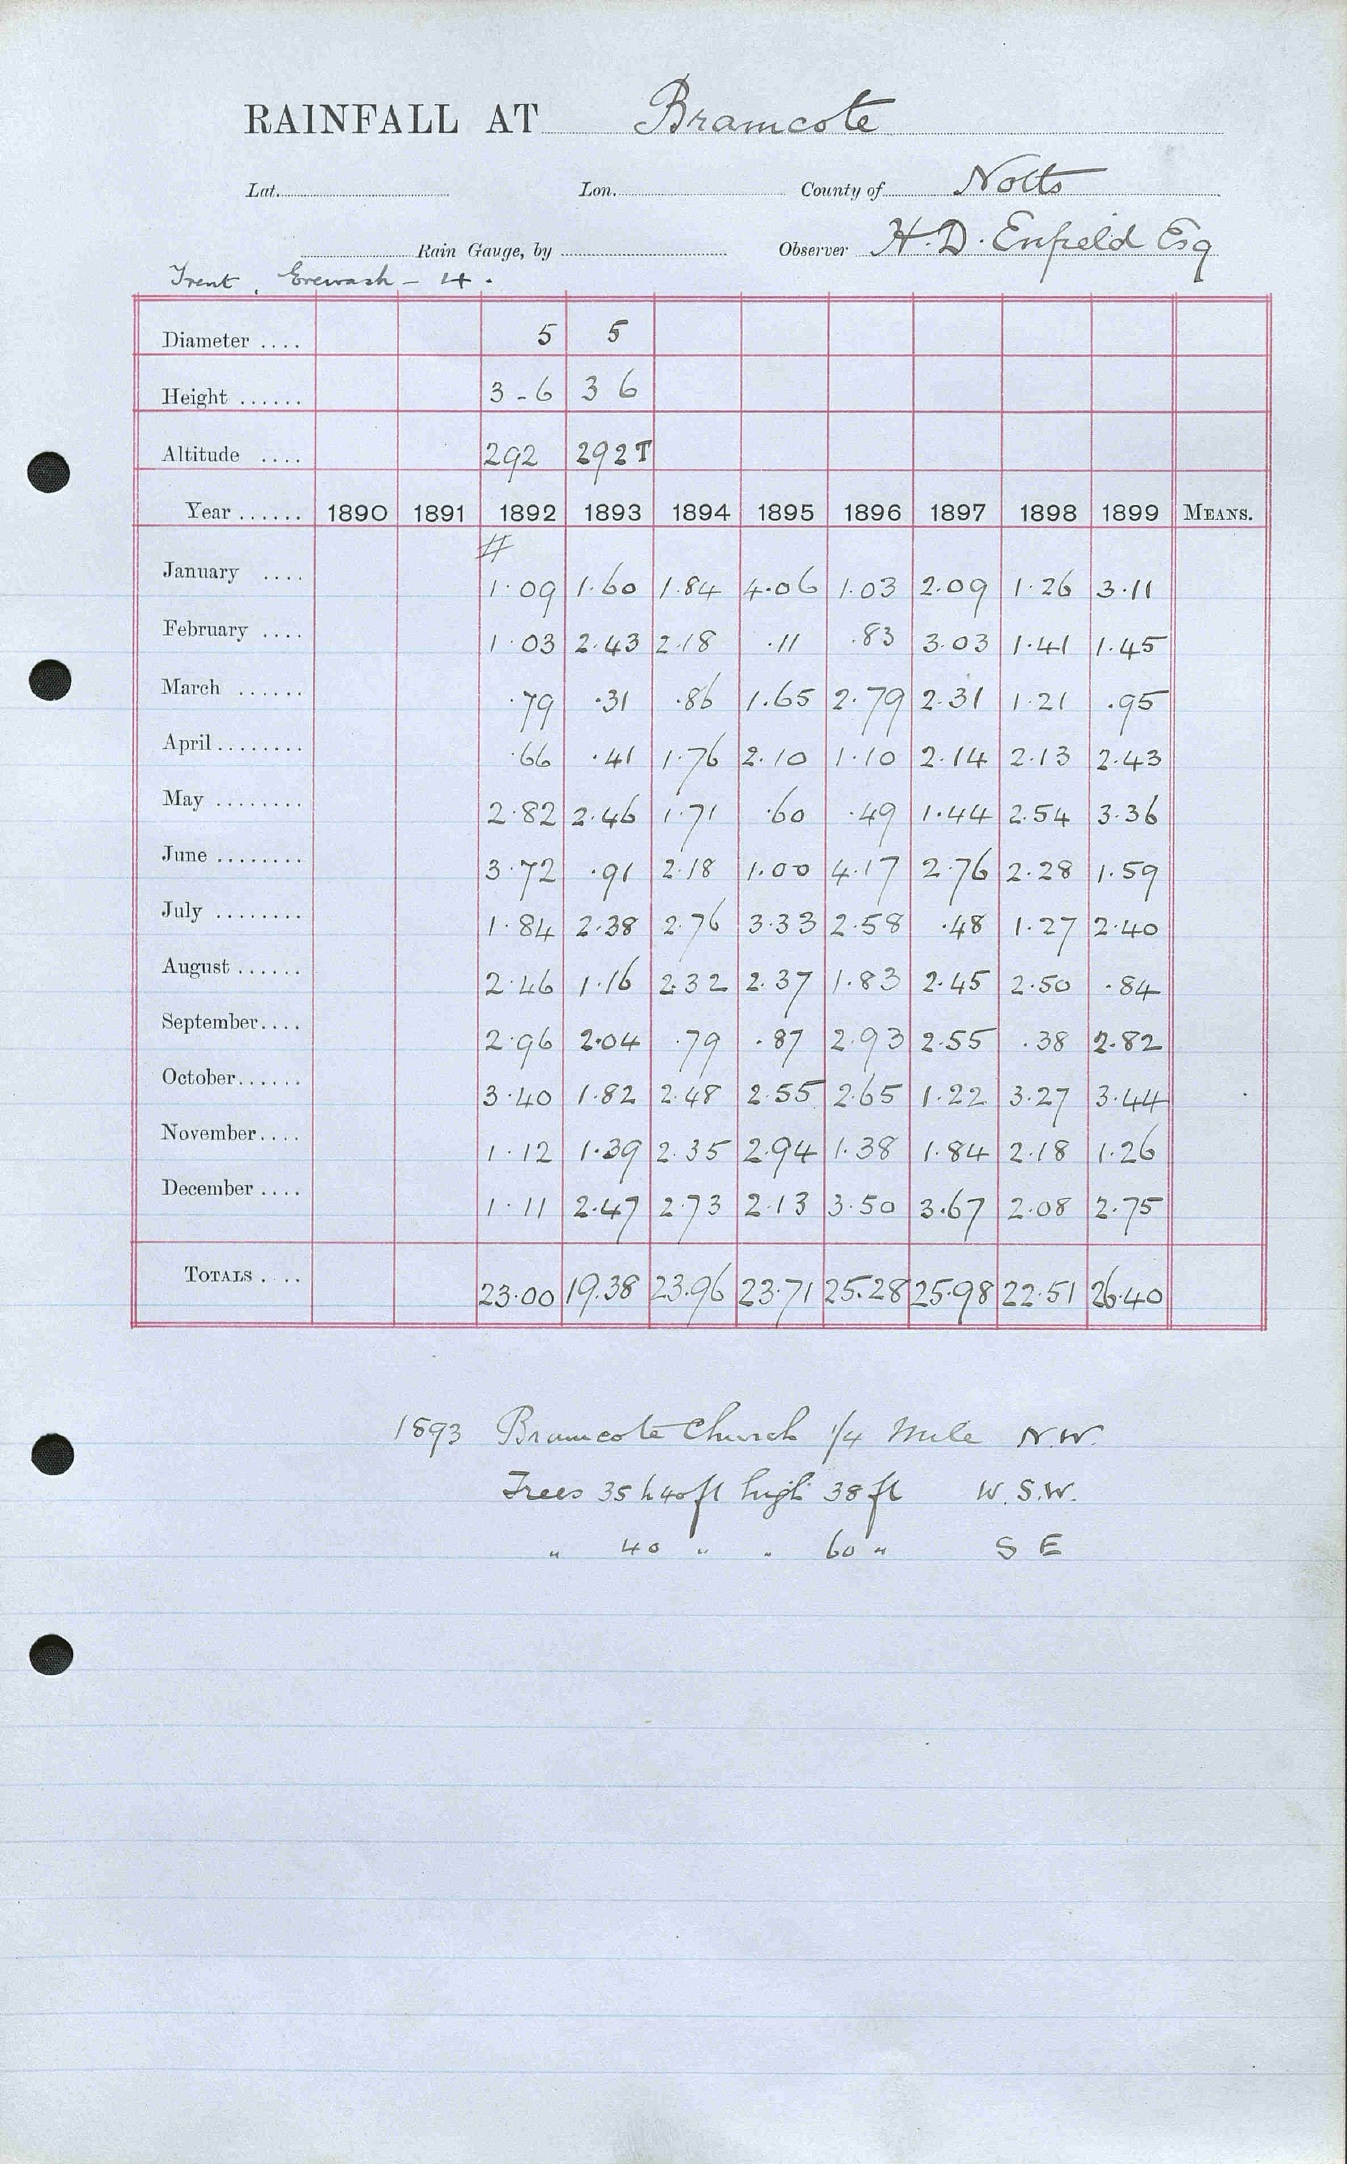 RAINFALL AT Bramcote
Lat. Lon. County of Notts
Rain Gauge, by Observer H. D. Enfield Esq
Trent, Erewash - 4.
Diameter .... 5 5
Height ...... 3-6 3 6
Altitude .... 292 292T
Year ...... 1890 1891 1892 1893 1894 1895 1896 1897 1898 1899 MEANS.
#
January .... 1.09 1.60 1.84 4.06 1.03 2.09 1.26 3.11
February .... 1.03 2.43 2.18 .11 .83 3.03 1.41 1.45
March ...... .79 .31 .86 1.65 2.79 2.31 1.21 .95
April ........ .66 .41 1.76 2.10 1.10 2.14 2.13 2.43
May ........ 2.82 2.46 1.71 .60 .49 1.44 2.54 3.36
June ........ 3.72 .91 2.18 1.00 4.17 2.76 2.28 1.59
July ........ 1.84 2.38 2.76 3.33 2.58 .48 1.27 2.40
August ...... 2.46 1.16 2.32 2.37 1.83 2.45 2.50 .84
September .... 2.96 2.04 .79 .87 2.93 2.55 .38 2.82
October ...... 3.40 1.82 2.48 2.55 2.65 1.22 3.27 3.44
November .... 1.12 1.39 2.35 2.94 1.38 1.84 2.18 1.26
December .... 1.11 2.47 2.73 2.13 3.50 3.67 2.08 2.75
TOTALS .... 23.00 19.38 23.96 23.71 25.28 25.98 22.51 26.40
1893 Bramcote Church 1/4 Mile N.W.
Trees 35 to 40 ft high 38 ft W.S.W.
" 40 " " 60 " S E